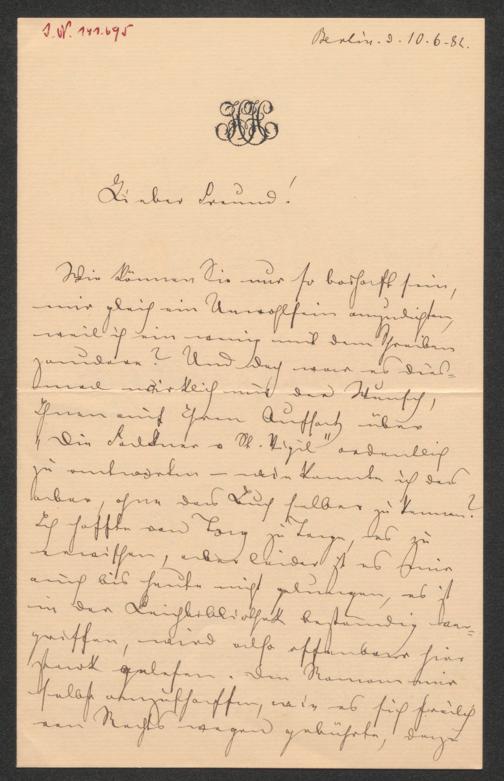 I.N. 141.695
Berlin. d. 10.6.82.
Lieber Freund!
Wie können Sie nur so boshaft sein,
mir gleich ein Unwohlsein anzudichten,
weil ich ein wenig mit dem Schreiben
zaudere? Und doch war es dies-
mal wirklich nur der Wunsch,
Ihnen auf Ihren Aufsatz über
"Die Falkner v St. Vigil" ordentlich
zu antworten – wie konnte ich das
aber, ohne das Buch selber zu kennen?
Ich hoffte von Tag zu Tage, es zu
erwischen, aber leider ist es mir
auch bis heute nicht gelungen, es ist
in der Leihbibliothek beständig ver-
griffen, wird also offenbar hier
stark gelesen. Den Roman mir
selbst anzuschaffen, wie es sich freilich
von Rechts wegen gebührte, dazu